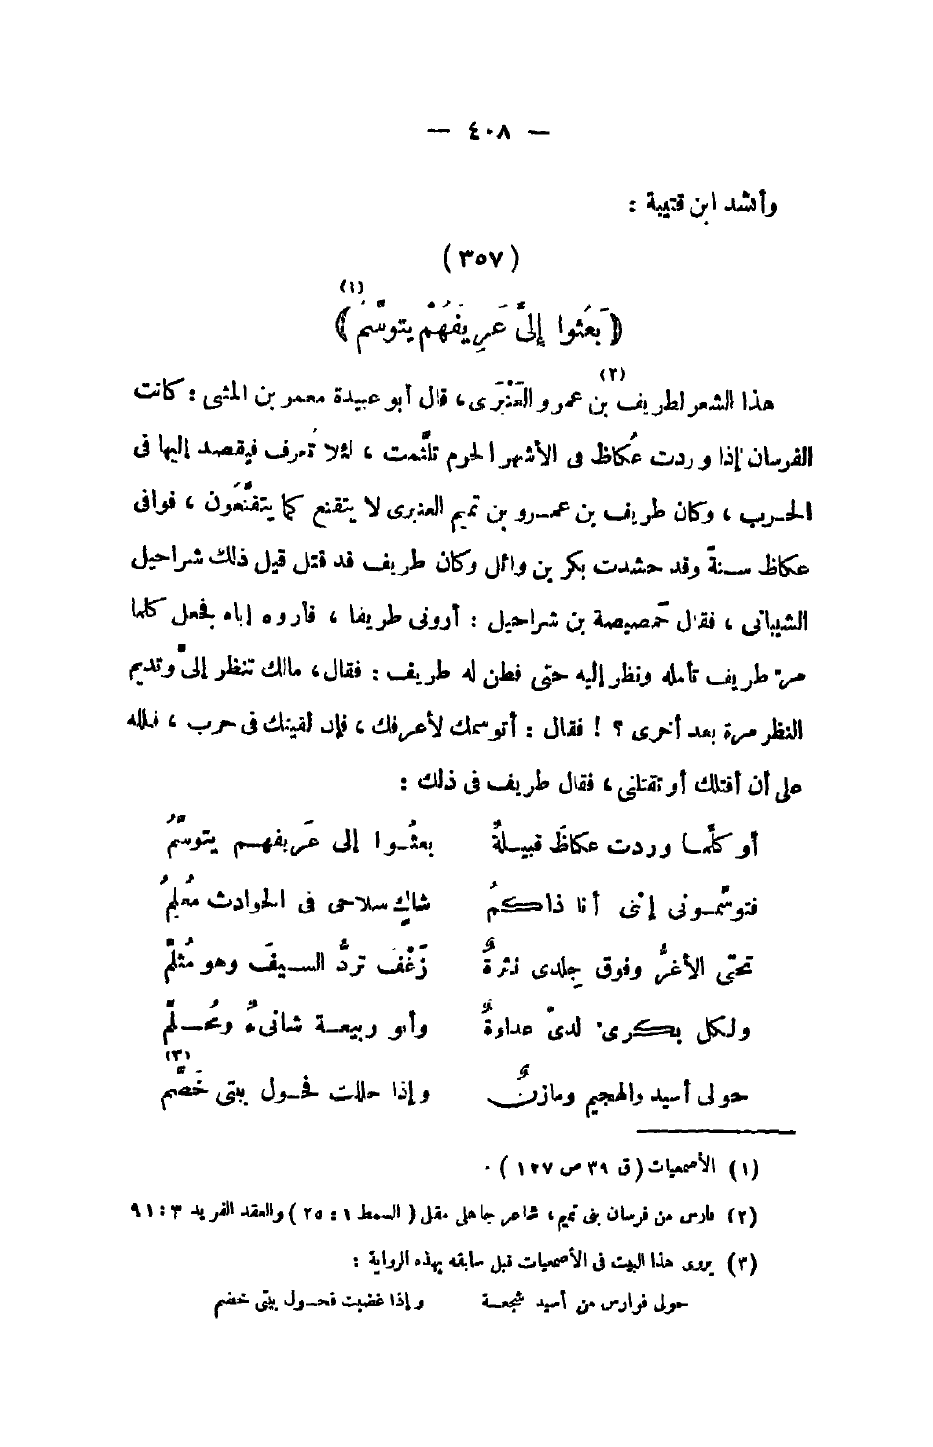 — ٤٠٨ —
وأنشد ابن قتيبة :
(٣٥٧)
﴿ بَعَثوا إلىَّ عَرِيفَهُمْ يتوسَّمُ ﴾ (١)
هذا الشعر لطريف بن عمرو العَنْبَرى (٢) ، قال أبو عبيدة معمر بن المثنى : كانت
الفرسان إذا وردت عُكاظ فى الأشهر الحرم تلثَّمت ، لئلا تُعرف فيقصد إليها فى
الحرب ، وكان طريف بن عمرو بن تميم العنبرى لا يتقنع كما يتقنَّعَون ، فوافى
عكاظ سنةً وقد حشدت بكر بن وائل وكان طريف قد قتل قبل ذلك شراحيل
الشيبانى ، فقال حَمصيصة بن شراحيل : أرونى طريفا ، فأروه إياه فجعل كلما
مرّ طريف تأمله ونظر إليه حتى فطن له طريف : فقال ، مالك تنظر إلىّ وتديم
النظر مرة بعد أخرى ؟ ! فقال : أتوسمك لأعرفك ، فإن لقيتك فى حرب ، فلله
على أن أقتلك أو تقتلنى ، فقال طريف فى ذلك :
أو كلَّما وردت عكاظَ قبيلةٌ بعثُوا إلى عَريفهم يتوسَّمُ
فتوسَّمونى إننى أنا ذاكمُ شاكٍ سلاحى فى الحوادث مُعلِمُ
تحتى الأغرُّ وفوق جِلدى نثرةٌ زَغْف تردُّ السيفَ وهو مُثلَّم
ولكل بكرىّ لدىّ عداوةٌ وأبو ربيعة شانىءٌ ومُحلَّم
حولى أسيد والهجيم ومازنٌ وإذا حللت فحول بيتى خَضَّم (٣)
(١) الأصمعيات (ق ٣٩ ص ١٢٧) .
(٢) فارس من فرسان بنى تميم ، شاعر جاهلى مقل (السمط ١ : ٢٥) والعقد الفريد ٣ : ٩١
(٣) يروى هذا البيت فى الأصمعيات قبل سابقه بهذه الرواية :
حولى فوارس من أسيد شجعة وإذا غضبت فحول بيتى خضم